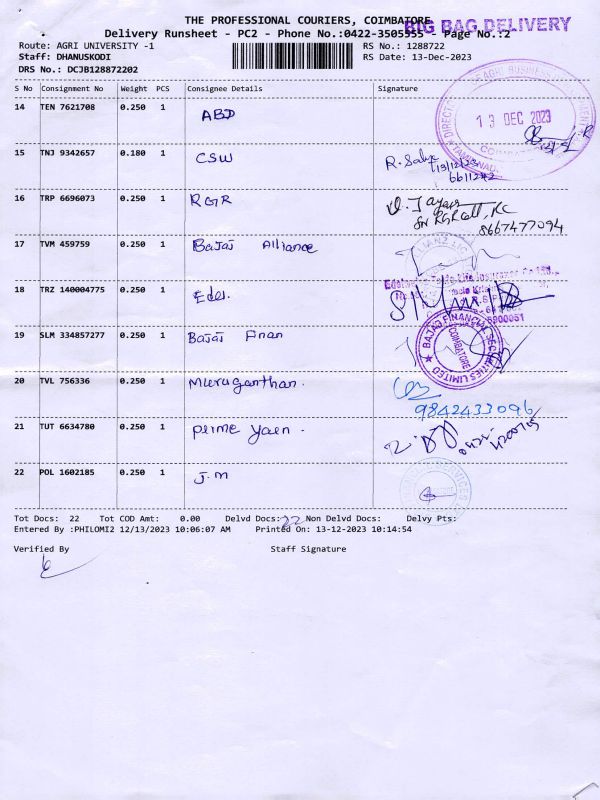 THE PROFESSIONAL COURIERS, COIMBATORE
BIG BAG DELIVERY
Delivery Runsheet - PC2 - Phone No.:0422-3505555 - Page No.:2
Route: AGRI UNIVERSITY -1 RS No.: 1288722
Staff: DHANUSKODI RS Date: 13-Dec-2023
DRS No.: DCJB128872202
S No Consignment No Weight PCS Consignee Details Signature
14 TEN 7621708 0.250 1 ABD
13 DEC 2023
15 TNJ 9342657 0.180 1 CSW
13/12/23
6611242
16 TRP 6696073 0.250 1 RGR
8667477094
17 TVM 459759 0.250 1 Bajaj Alliance
18 TRZ 140004775 0.250 1 Edel.
19 SLM 334857277 0.250 1 Bajaj Finan
BAJAJ FINANCIAL SECURITIES LIMITED
COIMBATORE
20 TVL 756336 0.250 1 Muruganthan.
9842433096
21 TUT 6634780 0.250 1 prime yarn.
22 POL 1602185 0.250 1 J.M
Tot Docs: 22 Tot COD Amt: 0.00 Delvd Docs: 22 Non Delvd Docs: Delvy Pts:
Entered By :PHILOMI2 12/13/2023 10:06:07 AM Printed On: 13-12-2023 10:14:54
Verified By Staff Signature